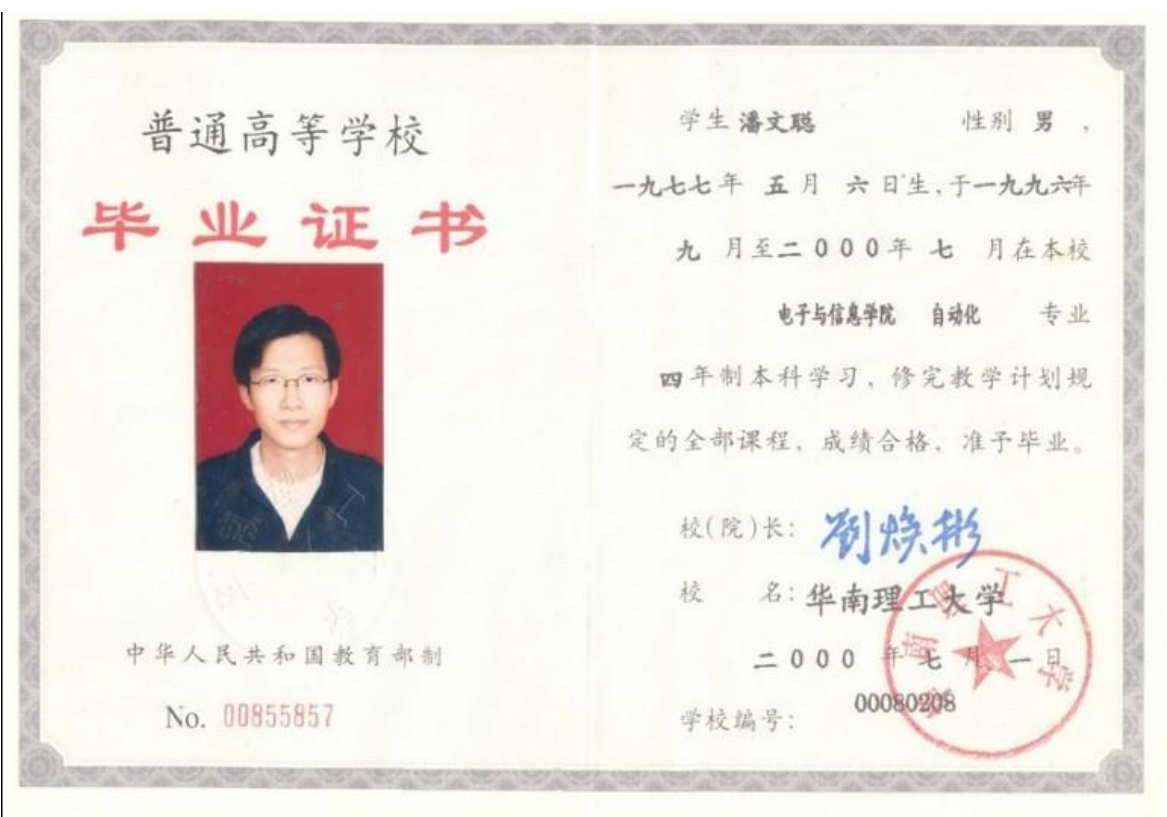 普通高等学校
毕业证书
中华人民共和国教育部制
No. 00855857
学生 潘文聪 性别 男，
一九七七年 五月 六日生，于一九九六年
九 月至二000年 七 月在本校
电子与信息学院 自动化 专业
四年制本科学习，修完教学计划规
定的全部课程，成绩合格，准予毕业。
校(院)长： 劉焕彬
校 名：华南理工大学
二000 年七月一日
学校编号： 00080208
华南理工大学